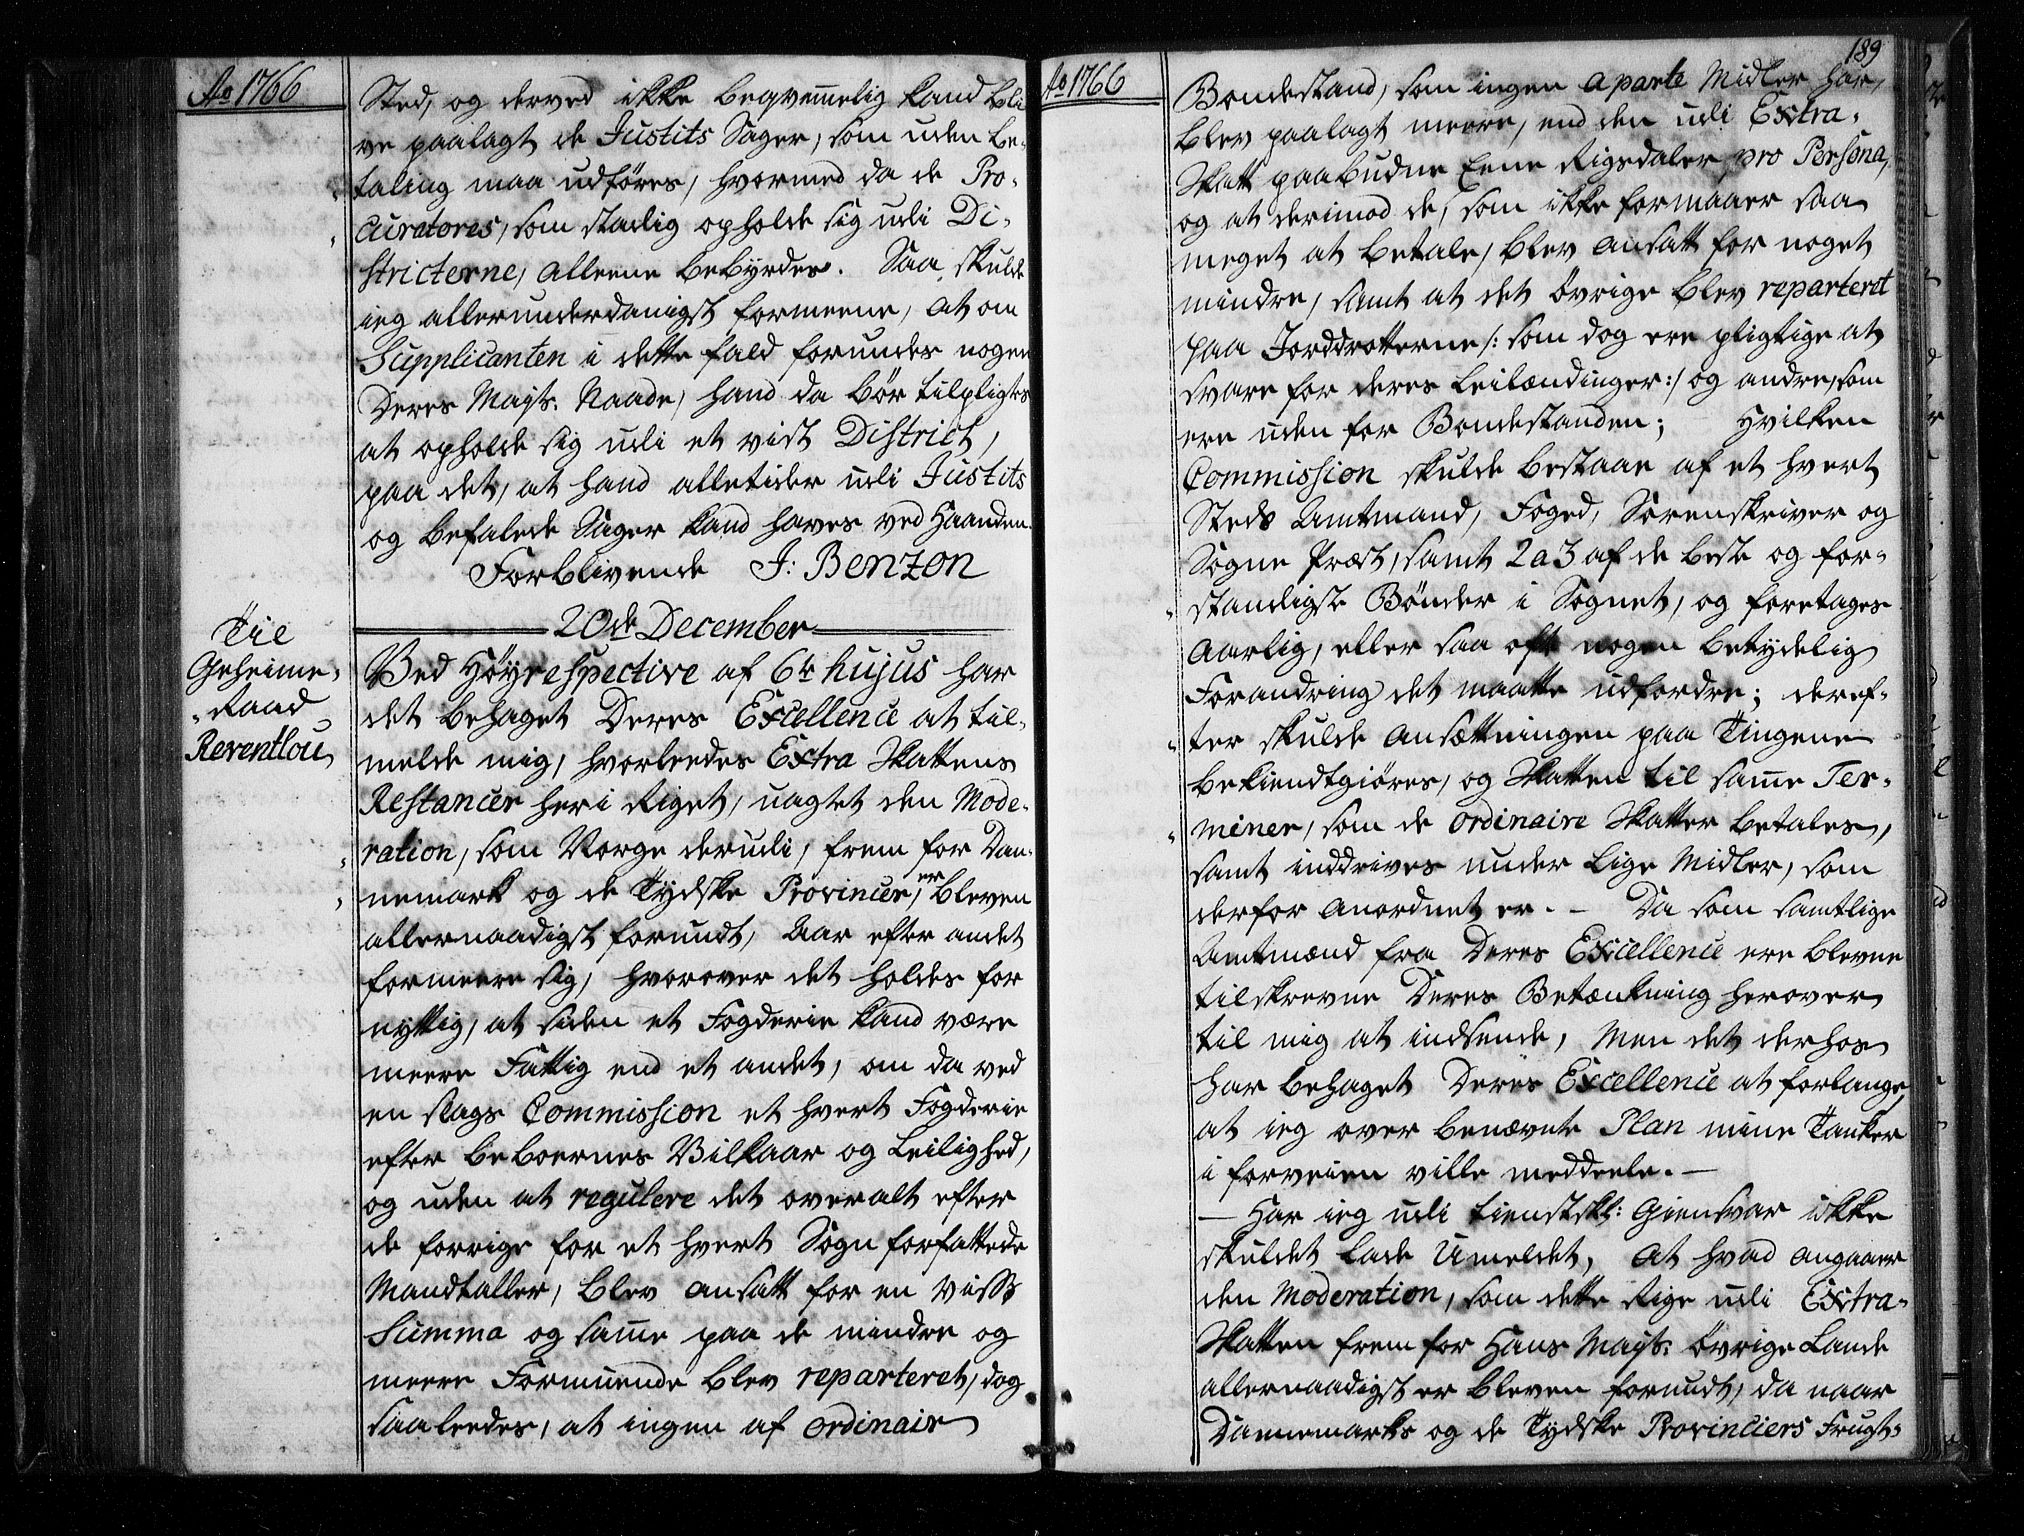 Ao 1766
Sted, og derved ikke beqvemmelig kand bli
ve paalagt de Justits Sager, som uden be-
taling maa udføres, hvormed da de Pro-
curatores, som stadig opholde sig udi Di-
stricterne, alleene bebyrdes. Saa skulde
ieg allerunderdanigst formeene, at om
Supplicanten i dette fald forundes nogen
Deres Mayts: Naade, hand da bør tilpligtes
at opholde sig udi et vist District,
paa det, at hand alletider udi Justits
og befalede Sager kand haves ved Haanden.
Forblivende J: Benzon
20de December
Til
Geheime-
Raad
Reventlou
Ved Høyrespective af 6te hujus har
det behaget Deres Excellence at til-
melde mig, hvorleedes Extra Skattens
Restancer her i Riget, uagtet den Mode-
ration, som Norge derudi, frem for Dan-
nemark og de Tydske Provincer, er bleven
allernaadigst forundt, Aar efter andet
formeere sig, hvorover det holdes for
nyttig, at siden et Fogderie kand være
meere Fattig end et andet, om da ved
en slags Commission et hvert Fogderie
efter Beboernes Vilkaar og Leilighed,
og uden at regulere det overalt efter
de forrige for et hvert Sogn forfattede
Mandtaller, blev ansatt for en viss
Summa og samme paa de mindre og
meere Formuende blev reparteret, dog
saaleedes, at ingen af ordinair
Ao 1766
189
Bondestand, som ingen aparte Midler har,
blev paalagt meere, end den udi Extra-
Skatt paabudne Eene Rigsdaler pro Persona,
og at derimod de, som ikke formaaer saa
meget at betale, blev ansatt for noget
mindre, samt at det øvrige blev reparteret
paa Jorddrotterne /: som dog ere pligtige at
svare for deres Leilændinger :/ og andre, som
ere uden for Bondestanden; Hvilken
Commission skulde bestaae af et hvert
Steds Amtmand, Foged, Sorenskriver og
Sogne Præst, samt 2 a 3 af de beste og for-
standigste Bønder i Sognet, og foretages
Aarlig, eller saa oft nogen betydelig
Forandring det maatte udfordre; deref-
ter skulde Ansættningen paa Tingene
bekiendtgiøres, og Skatten til samme Ter-
miner, som de ordinaire Skatter betales,
samt inddrives under lige Midler, som
derfor anordnet er. - Da som samtlige
Amtmænd fra Deres Excellence ere blevne
tilskrevne Deres Betænkning herover
til mig at indsende, Men det derhos
har behaget Deres Excellence at forlange,
at ieg over benævnte Plan mine Tanker
i forveien ville meddeele. -
- Har ieg udi tienstskl: Giensvar ikke
skuldet lade Umeldet, At hvad angaaer
den Moderation, som dette Rige udi Extra-
Skatten frem for Hans Mayts: øvrige Lande
allernaadigst er bleven forundt, da naar
Dannemarks og de Tydske Provinciers Frugt-